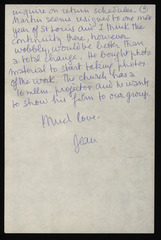 inquire on return schedules. ③
Martin seems resigned to one more
year of St Louis and I think the
continuity there, however
wobbly, would be better than
a total change. He bought photo
material to start taking photos
of the work. The church has a
16 mllm projector and he wants
to show his film to our group.
Much love.
Jean